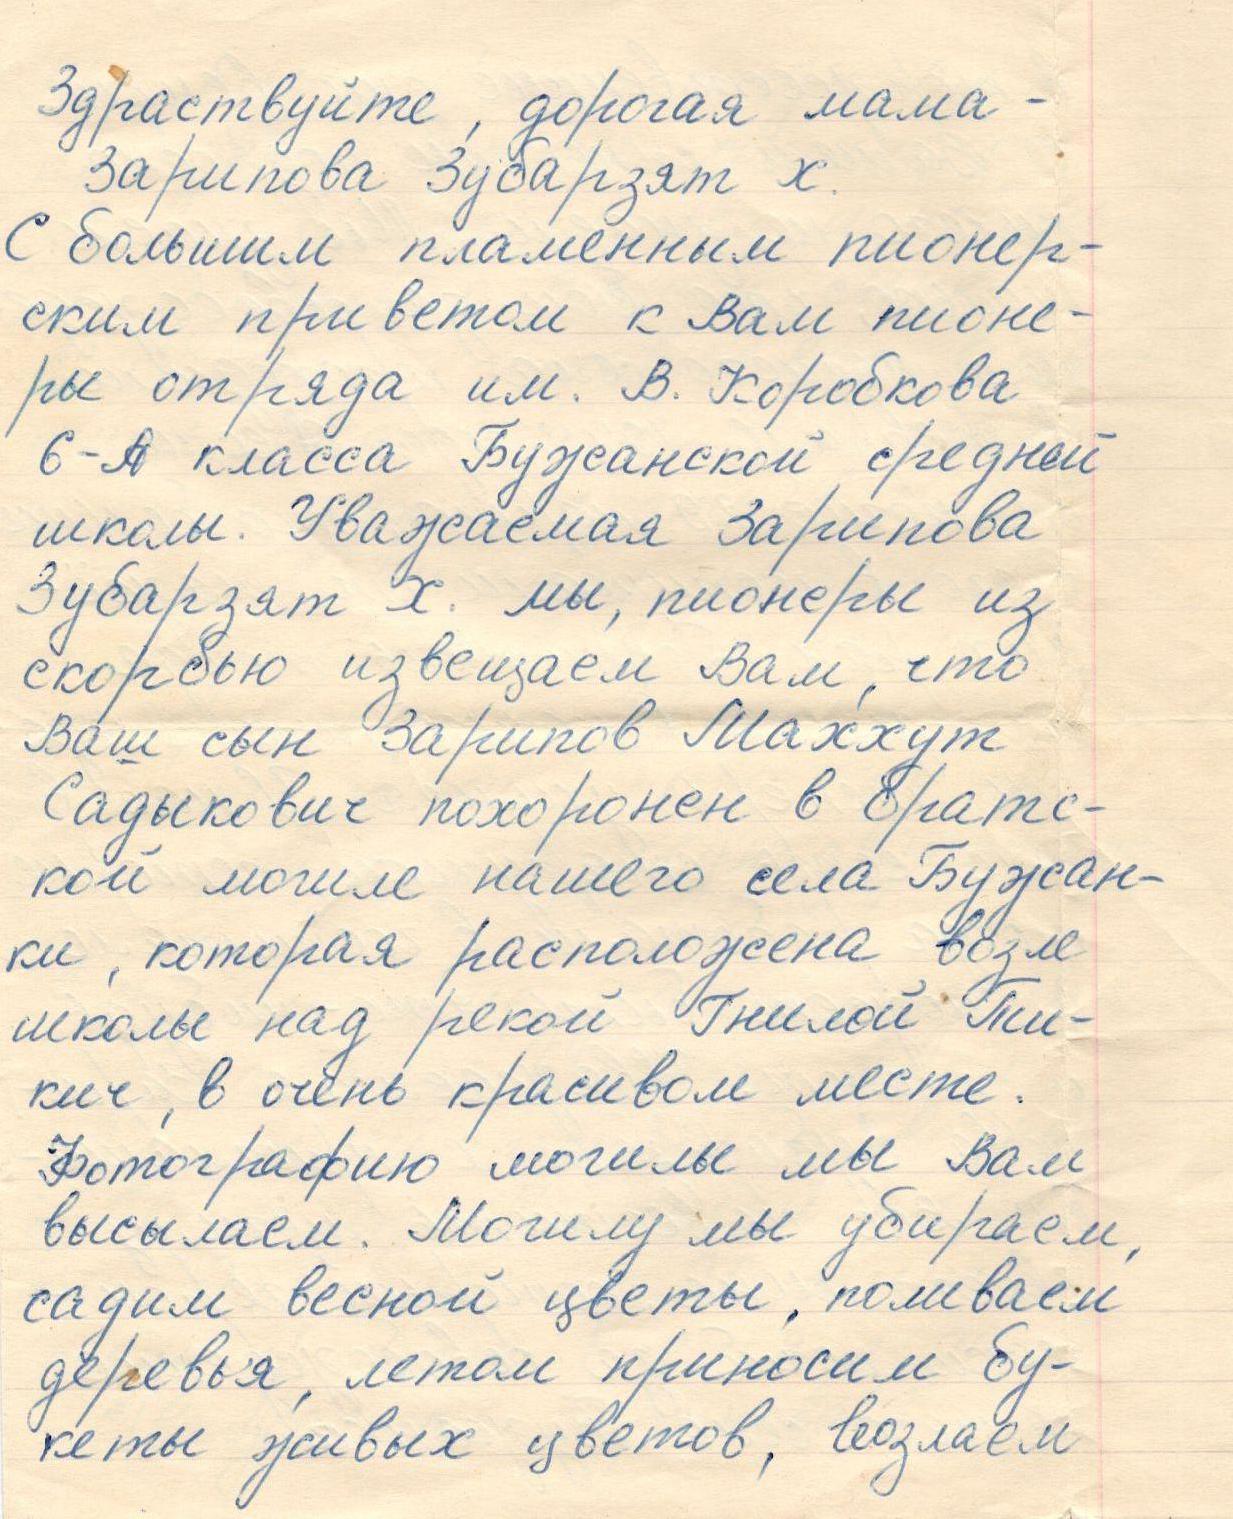 Здраствуйте, дорогая мама -
Зарипова Зубарзят Х.
С большим пламенным пионер-
ским приветом к Вам пионе-
ры отряда им. В. Коробкова
6-А класса Бужанской средней
школы. Уважаемая Зарипова
Зубарзят Х. мы, пионеры из
скорбью извещаем Вам, что
Ваш сын Зарипов Махxут
Садыкович похоронен в братс-
кой могиле нашего села Бужан-
ки, которая расположена возле
школы над рекой Гнилой Ти-
кич, в очень красивом месте.
Фотографию могилы мы Вам
высылаем. Могилу мы убираем,
садим весной цветы, поливаем
деревья, летом приносим бу-
кеты живых цветов, возлаем